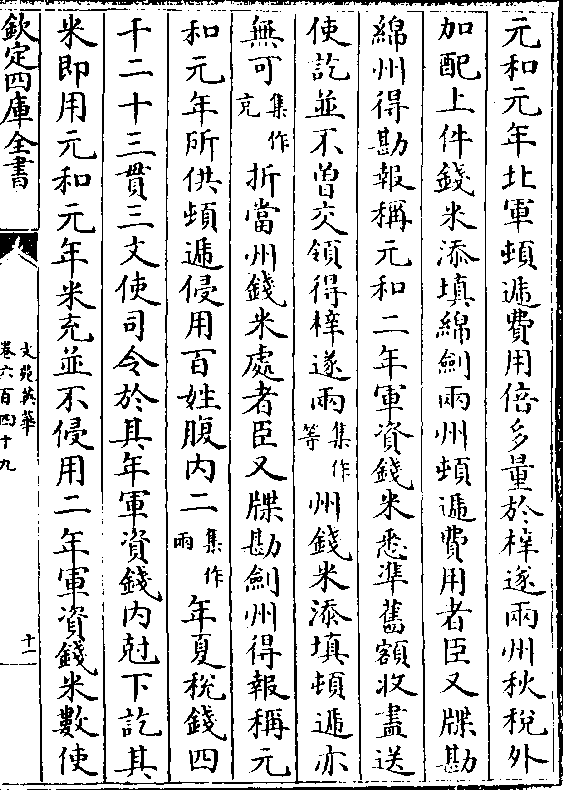 元和元年北軍頓遞費用倍多量於梓遂兩州秋稅外
加配上件錢米添填綿劍兩州頓遞費用者臣又牒勘
綿州得勘報稱元和二年軍資錢米悉準舊額收盡送
使訖並不曾交領得梓遂兩集作等州錢米添填頓遞亦
無可集作克折當州錢米處者臣又牒勘劍州得報稱元
和元年所供頓遞侵用百姓腹内二集作兩年夏稅錢四
千二十三貫三文使司令於其年軍資錢内尅下訖其
米即用元和元年米充並不侵用二年軍資錢米數使
欽定四庫全書
文苑英華
卷六百四十九
十一